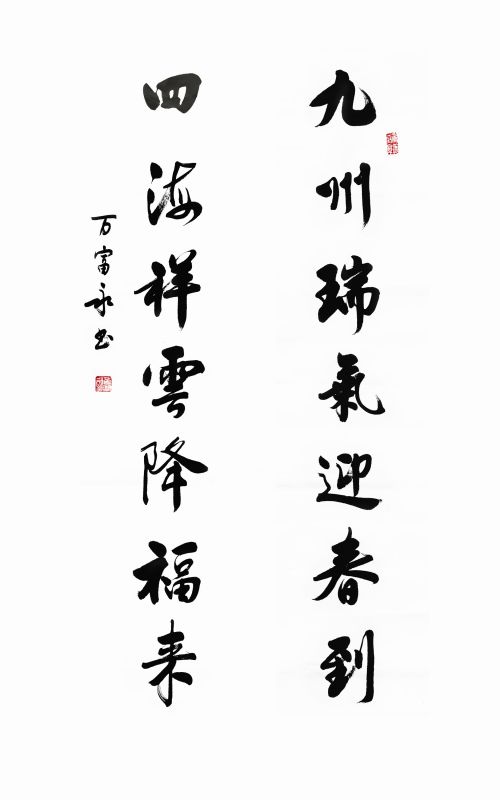 九州瑞氣迎春到
四海祥雲降福来
万富永书